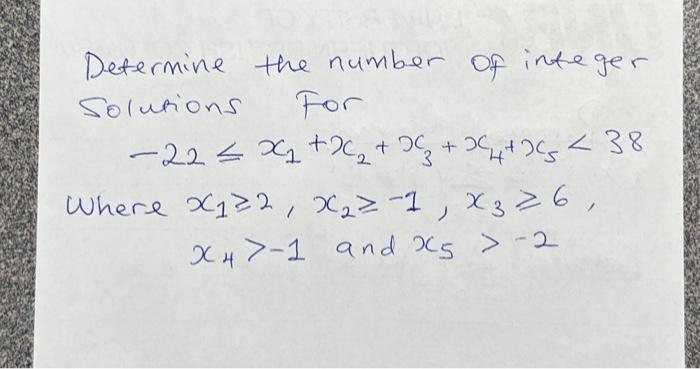 Determine the number of integer
Solutions For
-22 ≤ x₁ + x₂ + x₃ + x₄ + x₅ < 38
Where x₁ ≥ 2, x₂ ≥ -1, x₃ ≥ 6,
x₄ > -1 and x₅ > -2